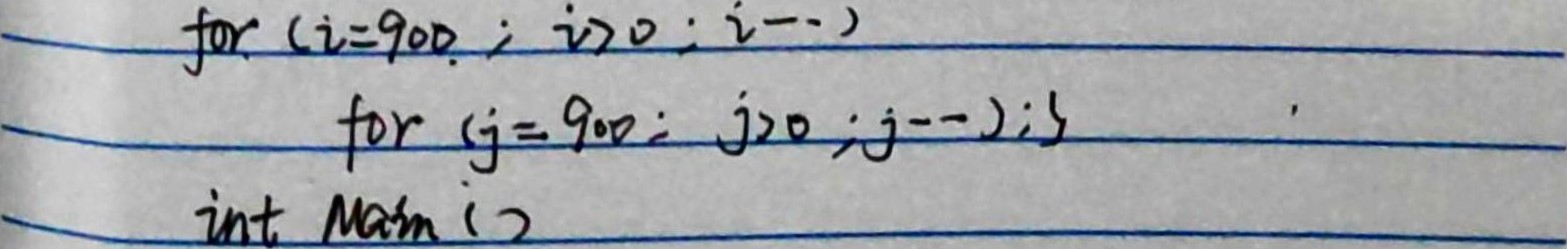 for (i=900 ; i>0 ; i--)
for (j=900 ; j>0 ; j--);}
int Main ()